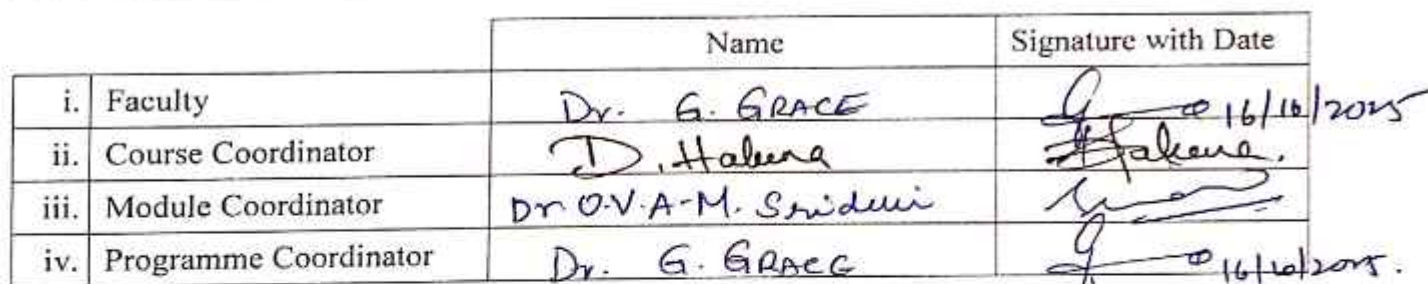 Name Signature with Date
i. Faculty Dr. G. GRACE 16/10/2025
ii. Course Coordinator D. Halena Halena.
iii. Module Coordinator Dr. O.V.A.M. Sridevi
iv. Programme Coordinator Dr. G. GRACE 16/10/2025.